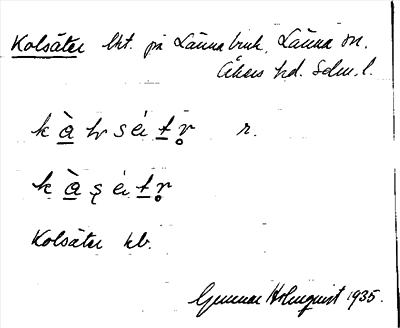 Kolsäter lht. på Länna bruk, Länna sn.
Åkers hd. Sdm. l.
k à̱ lr s éi ṯ r̥ r.
k à̱ ʂ éi ṯ r̥
Kolsäter kb.
Gunnar Holmquist 1935.